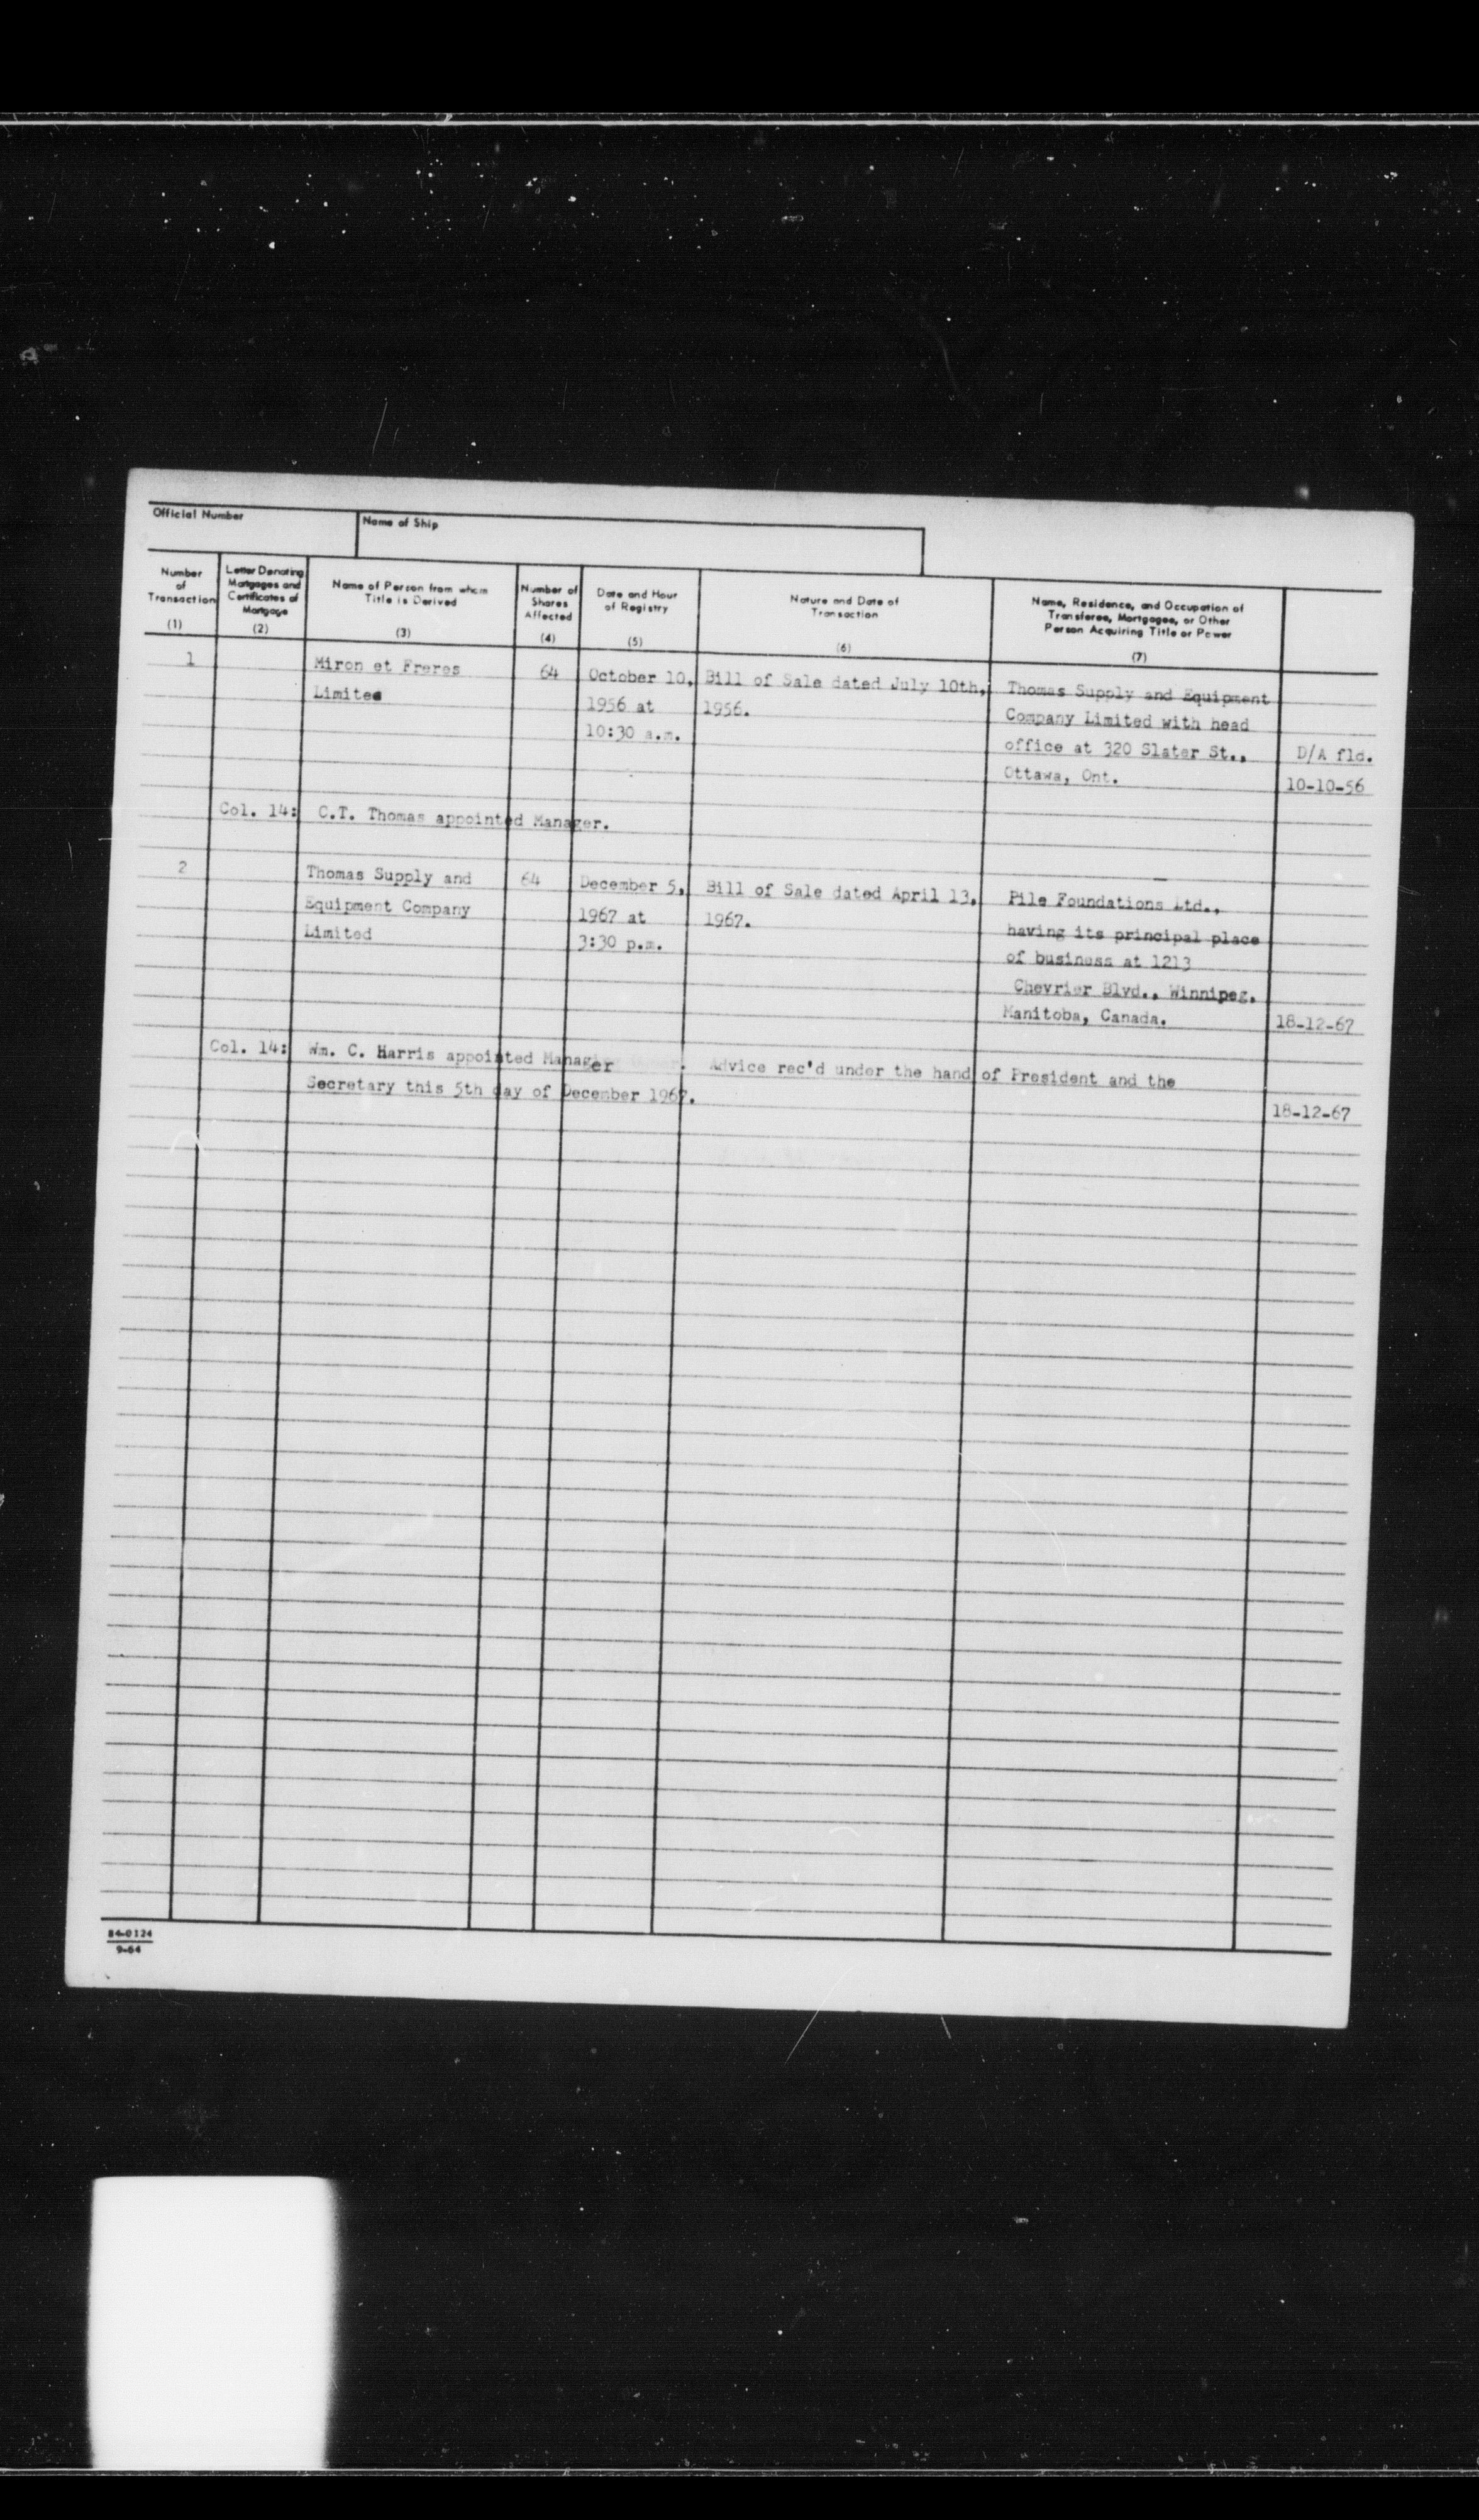 Official Number
Name of Ship
Number
of
Transaction
(1)
Letter Denoting
Mortgages and
Certificates of
Mortgage
(2)
Name of Person from whom
Title is Derived
(3)
Number of
Shares
Affected
(4)
Date and Hour
of Registry
(5)
Nature and Date of
Transaction
(6)
Name, Residence, and Occupation of
Transferee, Mortgagee, or Other
Person Acquiring Title or Power
(7)
1
Miron et Freres
Limitee
64
October 10,
1956 at
10:30 a.m.
Bill of Sale dated July 10th,
1956.
Thomas Supply and Equipment
Company Limited with head
office at 320 Slater St.,
Ottawa, Ont.
D/A fld.
10-10-56
Col. 14: C.T. Thomas appointed Manager.
2
Thomas Supply and
Equipment Company
Limited
64
December 5,
1967 at
3:30 p.m.
Bill of Sale dated April 13,
1967.
Pile Foundations Ltd.,
having its principal place
of business at 1213
Chevrier Blvd., Winnipeg,
Manitoba, Canada.
18-12-67
Col. 14: Wm. C. Harris appointed Manager . Advice rec'd under the hand of President and the
Secretary this 5th day of December 1967.
18-12-67
84-0124
9-64